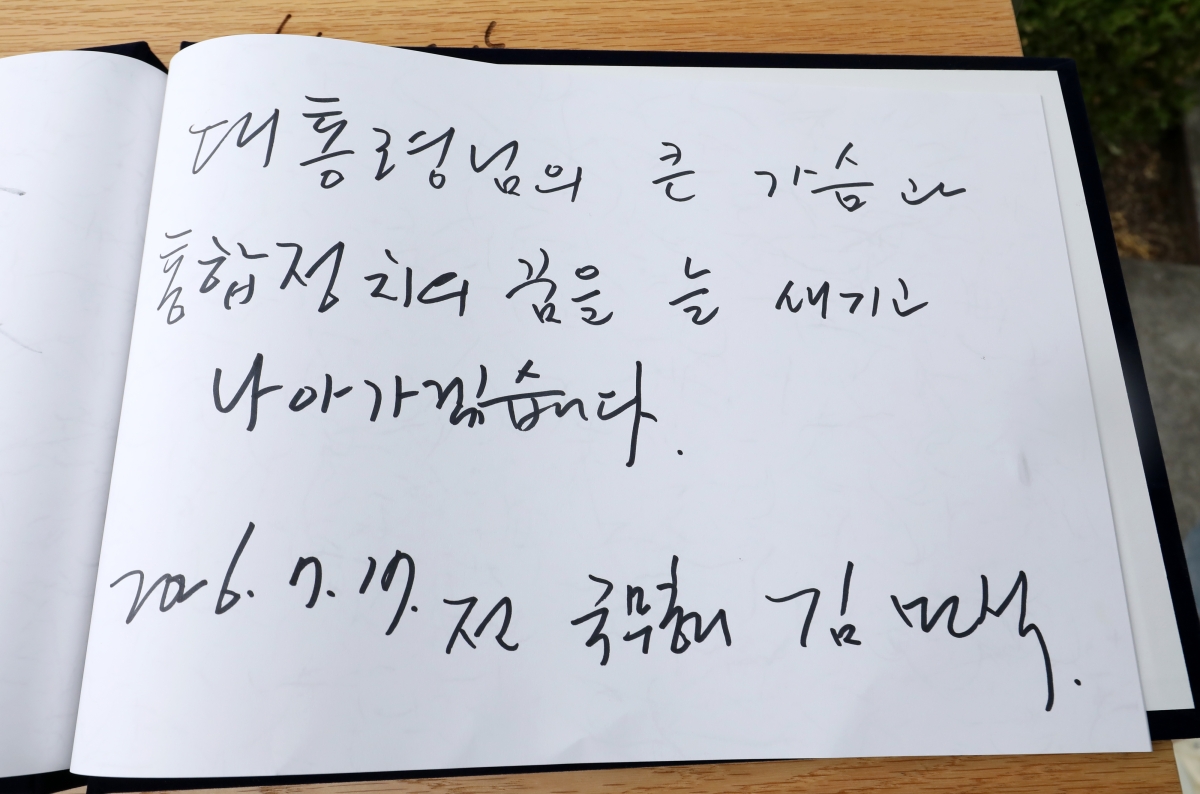 대통령님의 큰 가슴과
통합정치의 꿈을 늘 새기고
나아가겠습니다.
2026. 7. 17. 전 국무총리 김민석.